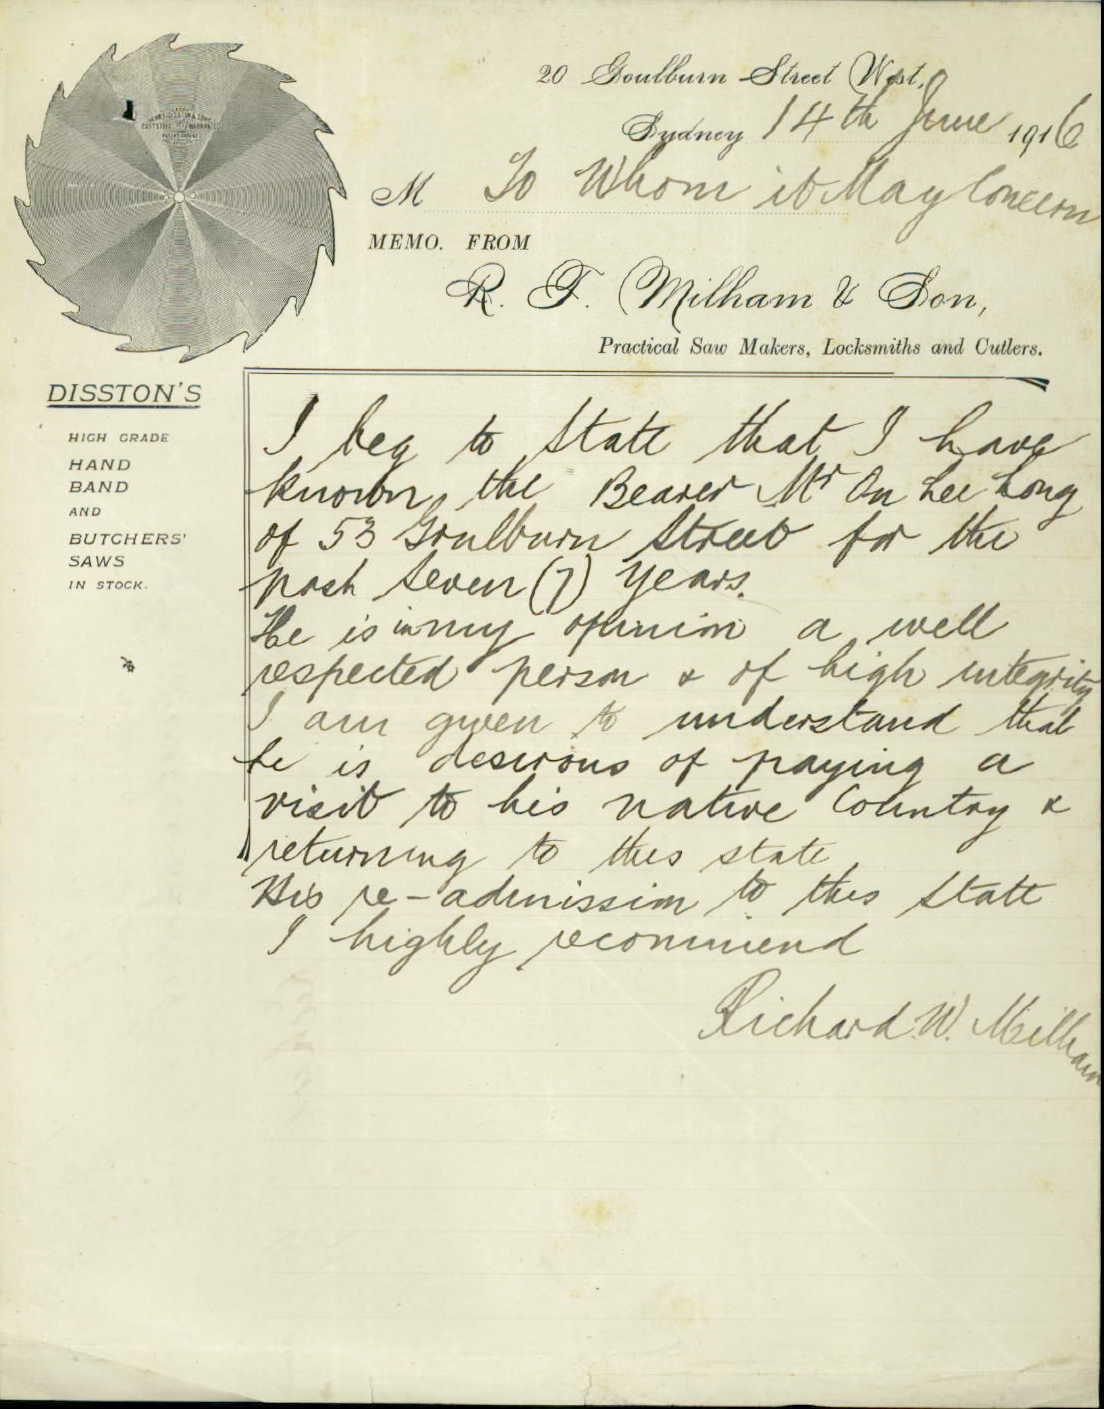 20 Goulburn Street West,
Sydney 14th June 1916
M To Whom it May Concern
MEMO. FROM
R. F. Milham & Son,
Practical Saw Makers, Locksmiths and Cutlers.
DISSTON'S
HIGH GRADE
HAND
BAND
AND
BUTCHERS'
SAWS
IN STOCK.
I beg to State that I have
known the Bearer Mr On Lee Long
of 53 Goulburn Street for the
past Seven (7) years.
He is in my opinion a well
respected person & of high integrity
I am given to understand that
he is desirous of paying a
visit to his native Country &
returning to this state
His re-admission to this State
I highly recommend
Richard. W. Milham